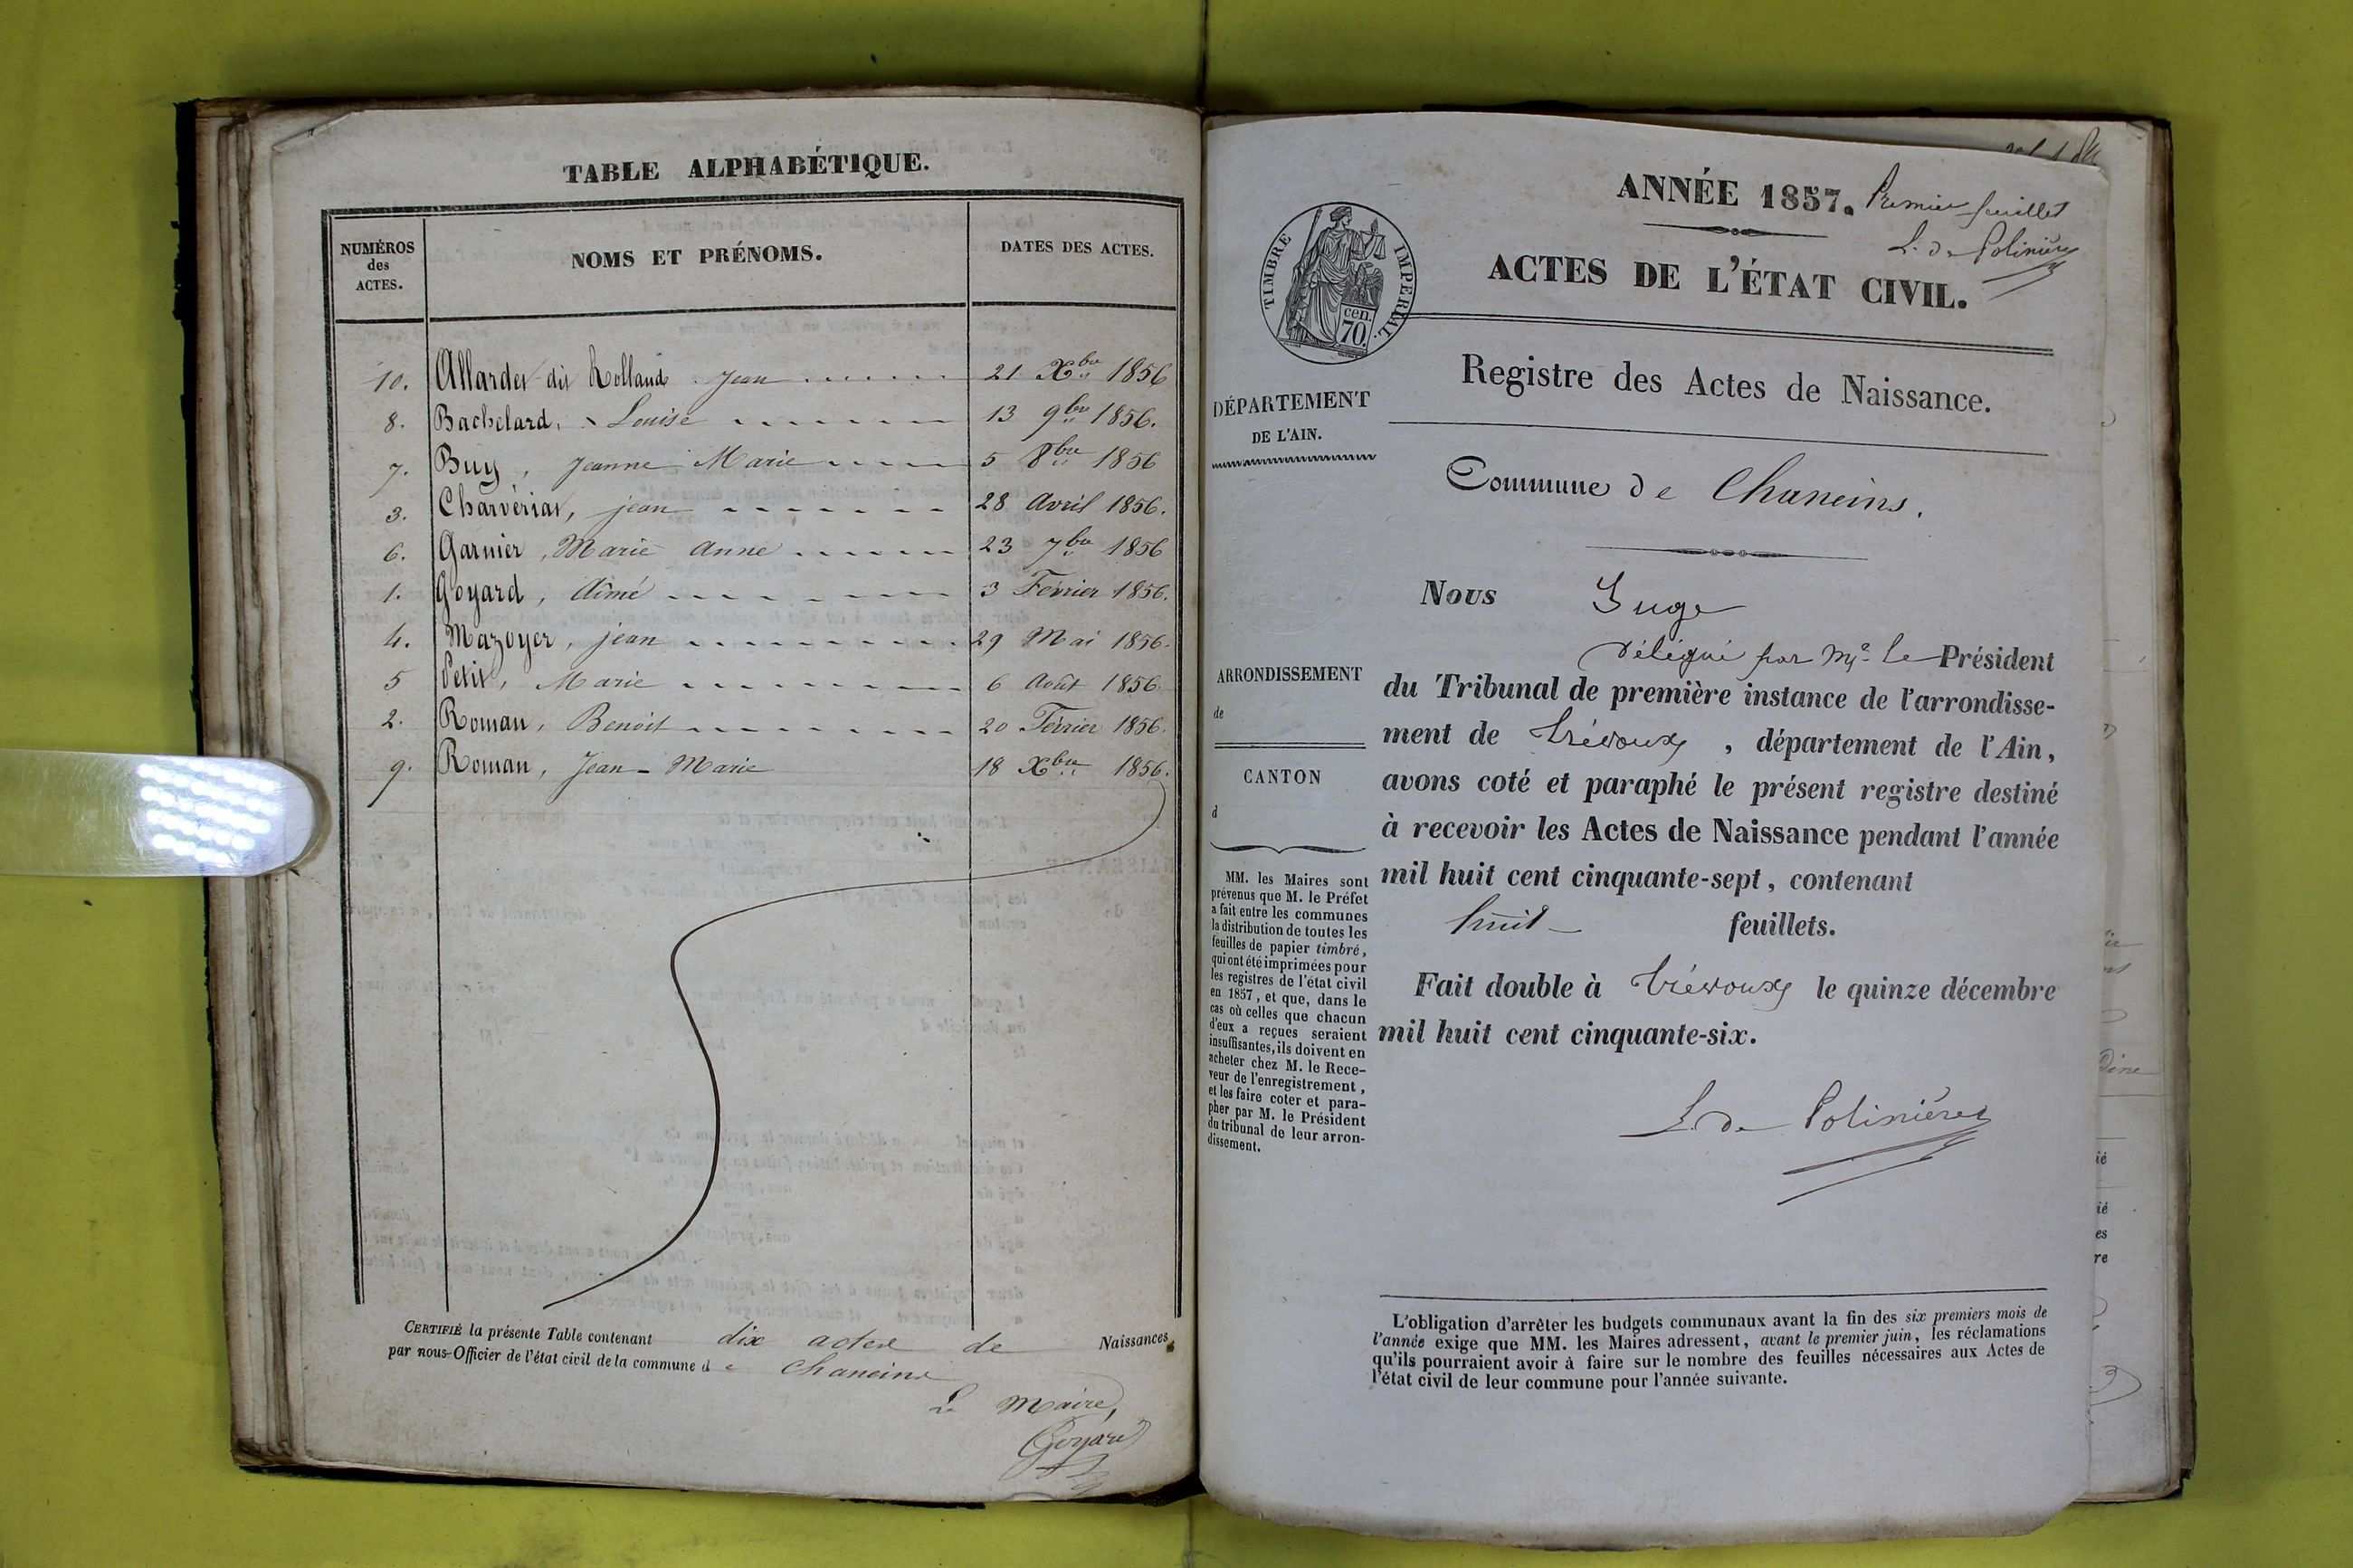 TABLE ALPHABÉTIQUE.
NUMÉROS des ACTES. NOMS ET PRÉNOMS. DATES DES ACTES.
10. Allardet dit Rolland Jean 21 Xbre 1856
8. Bachelard, Louise 13 9bre 1856.
7. Buy, Jeanne Marie 5 8bre 1856
3. Charvériat, jean 28 Avril 1856.
6. Garnier, Marie Anne 23 7bre 1856
1. Goyard, Aimé 3 Février 1856.
4. Mazoyer, jean 29 Mai 1856.
5 Petit, Marie 6 Août 1856
2. Roman, Benoit 20 Février 1856.
9. Roman, Jean-Marie 18 Xbre 1856.
CERTIFIÉ la présente Table contenant dix actes de Naissances
par nous Officier de l'état civil de la commune de Chaneins
Le Maire,
Goyard
ANNÉE 1857. Premier feuillet
L. de Polinière
TIMBRE IMPERIAL.
cen.
70.
ACTES DE L'ÉTAT CIVIL.
Registre des Actes de Naissance.
DÉPARTEMENT
DE L'AIN.
Commune de Chaneins.
Nous Juge
délégué par Mr. le Président
du Tribunal de première instance de l'arrondisse-
ment de Trévoux, département de l'Ain,
avons coté et paraphé le présent registre destiné
à recevoir les Actes de Naissance pendant l'année
mil huit cent cinquante-sept, contenant
huit feuillets.
Fait double à Trévoux le quinze décembre
mil huit cent cinquante-six.
L. de Polinière
ARRONDISSEMENT
de
CANTON
d
MM. les Maires sont
prévenus que M. le Préfet
a fait entre les communes
la distribution de toutes les
feuilles de papier timbré,
qui ont été imprimées pour
les registres de l'état civil
en 1857, et que, dans le
cas où celles que chacun
d'eux a reçues seraient
insuffisantes, ils doivent en
acheter chez M. le Rece-
veur de l'enregistrement,
et les faire coter et para-
pher par M. le Président
du tribunal de leur arron-
dissement.
L'obligation d'arrêter les budgets communaux avant la fin des six premiers mois de
l'année exige que MM. les Maires adressent, avant le premier juin, les réclamations
qu'ils pourraient avoir à faire sur le nombre des feuilles nécessaires aux Actes de
l'état civil de leur commune pour l'année suivante.